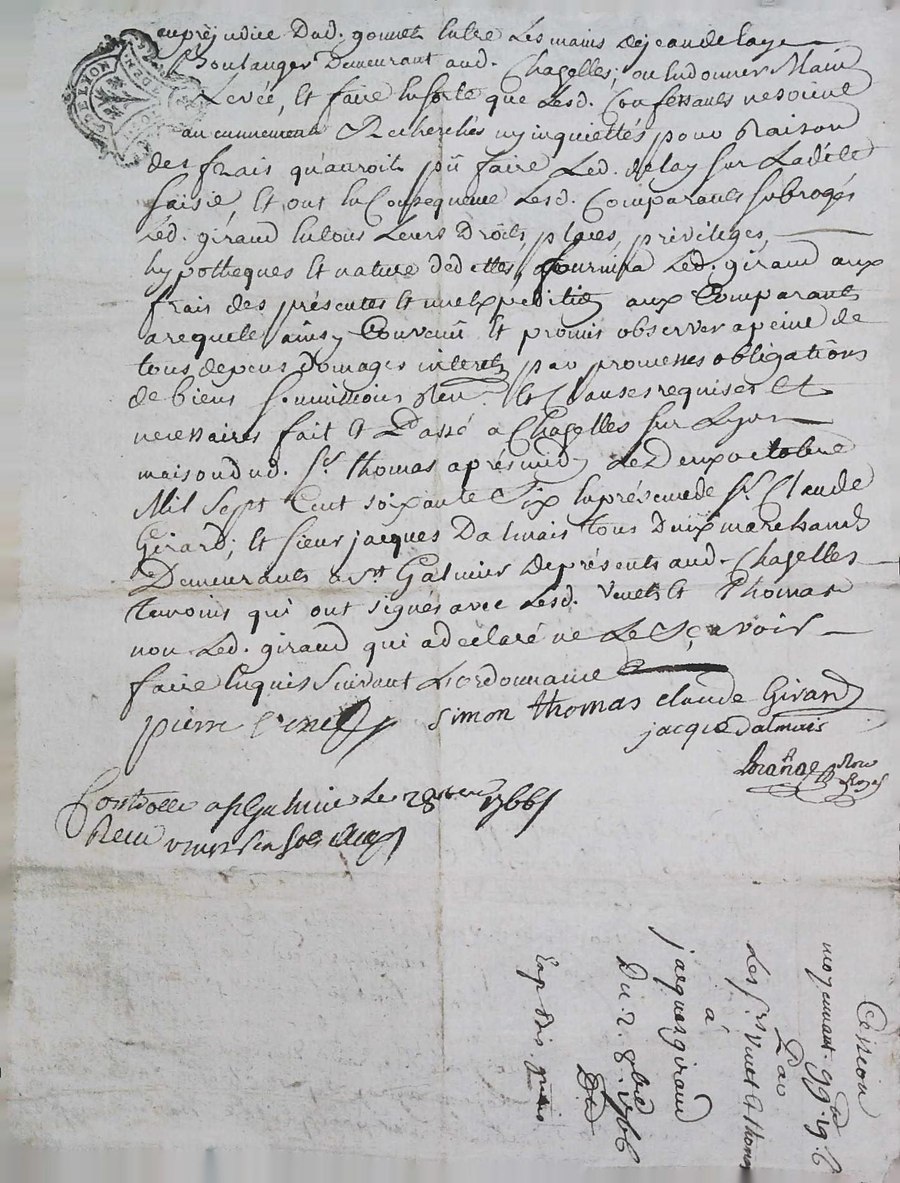 au prejudice Dud. gonnet Entre Les mains dejean delaye
Boulanger Demeurant aud. Chazelles; ou lui donner Main
Levée, Et faire Ensorte que Lesd. Confessants nesoient
aucunnement Recherchés ny inquiettés pour Raison
des frais qu'auroit pû faire Led. delay sur Ladite
saisie, Et ont En Consequence Lesd. Comparants subrogés
Led. giraud Entous Leurs Droits, places, privileges,
hypotheques Et nature dedettes, fournira Led. giraud aux
frais des présentes Et une Expedition aux Comparants
arequete ainsy Convenû Et promis observer apeine de
tous depens domages interets par promesses obligations
de biens soumissions Ren. Et Clauses requises Et
necessaires fait Et Passé a Chazelles sur Lyon
maison dud. Sr. Thomas après midy Le Deux octobre
Mil Sept Cent soixante Six En présence de Sr. Claude
Girard; Et sieur jacques Dalmais tous Deux marchands
Demeurants a St Galmier De présents aud. Chazelles
temoins qui ont signés avec Lesd. Venet Et Thomas
non Led. giraud qui a declaré ne Le Sçavoir
faire Enquis suivant L'ordonnance
pierre Venet simon thomas claude Girard
jacque Dalmais
Nore Royal
Controllé a St Galmier Le 2 8bre 1766
Reçu
Cession
moyennant 99. 19. 6
Par
Les Srs Venet Et thomas
à
jacques giraud
Du. 2. 8bre 1766